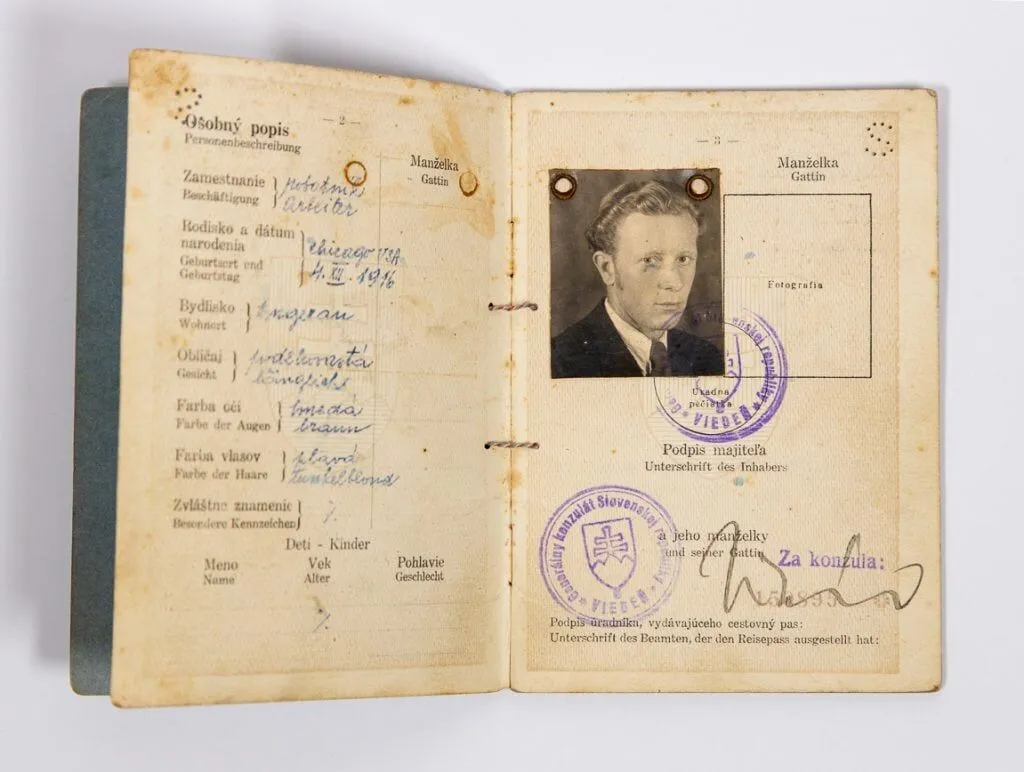 — 2 —
Osobný popis
Personenbeschreibung
Manželka
Gattin
Zamestnanie
Beschäftigung
robotník
Arbeiter
Rodisko a dátum
narodenia
Geburtsort und
Geburtstag
Chicago USA
4. XII. 1916
Bydlisko
Wohnort
Engerau
Obličaj
Gesicht
podlhovastá
länglich
Farba očí
Farbe der Augen
hnedá
braun
Farba vlasov
Farbe der Haare
plavá
dunkelblond
Zvláštne znamenie
Besondere Kennzeichen
Deti - Kinder
Meno
Name
Vek
Alter
Pohlavie
Geschlecht
— 3 —
Manželka
Gattin
Fotografia
Slovenskej republiky
VIEDEŇ
Úradná
pečiatka
Podpis majiteľa
Unterschrift des Inhabers
Generálny konzulát Slovenskej republiky
VIEDEŇ
a jeho manželky
und seiner Gattin
Za konzula:
Podpis úradníka, vydávajúceho cestovný pas:
Unterschrift des Beamten, der den Reisepass ausgestellt hat: